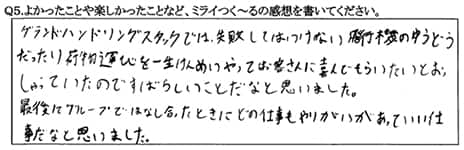 Q5.よかったことや楽しかったことなど、ミライつく〜るの感想を書いてください。
グランドハンドリングスタッフでは、失敗してはいけない飛行機のゆうどう
だったり荷物運びを一生けんめいやってお客さんに喜んでもらいたいとおっ
しゃっていたのですばらしいことだなと思いました。
最後にグループではなし合ったときにどの仕事もやりがいがあっていい仕
事だなと思いました。